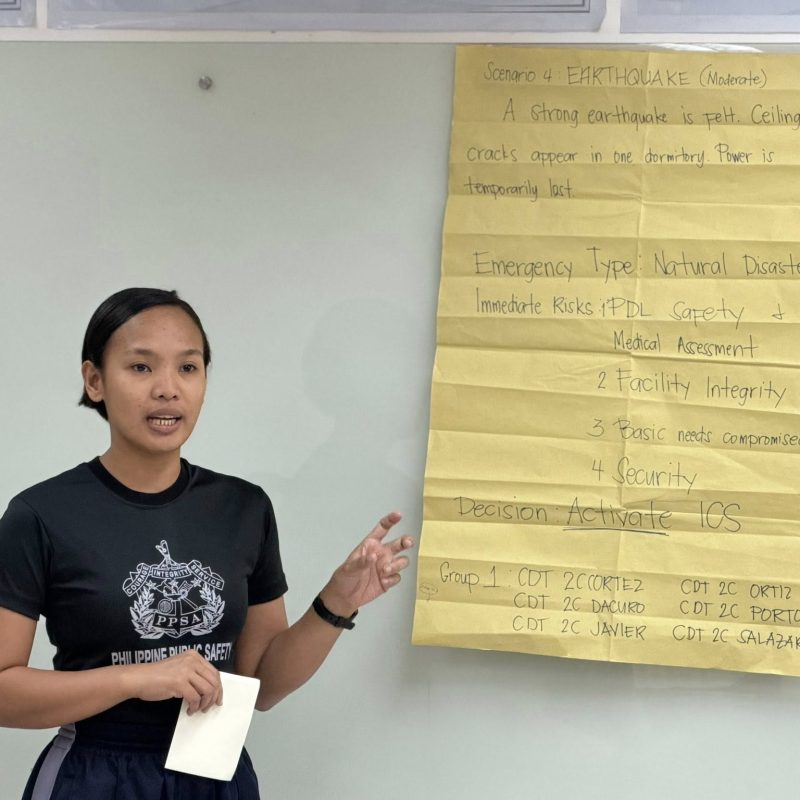 Scenario 4: EARTHQUAKE (Moderate)
A strong earthquake is felt. Ceiling
cracks appear in one dormitory. Power is
temporarily lost.
Emergency Type: Natural Disaste
Immediate Risks: 1 PDL Safety &
Medical Assessment
2 Facility Integrity
3 Basic needs compromised
4 Security
Decision: Activate ICS
Group 1: CDT 2C CORTEZ CDT 2C ORTIZ
CDT 2C DACURO CDT 2C PORTO
CDT 2C JAVIER CDT 2C SALAZAR
COURAGE INTEGRITY SERVICE
PPSA
PHILIPPINE PUBLIC SAFETY